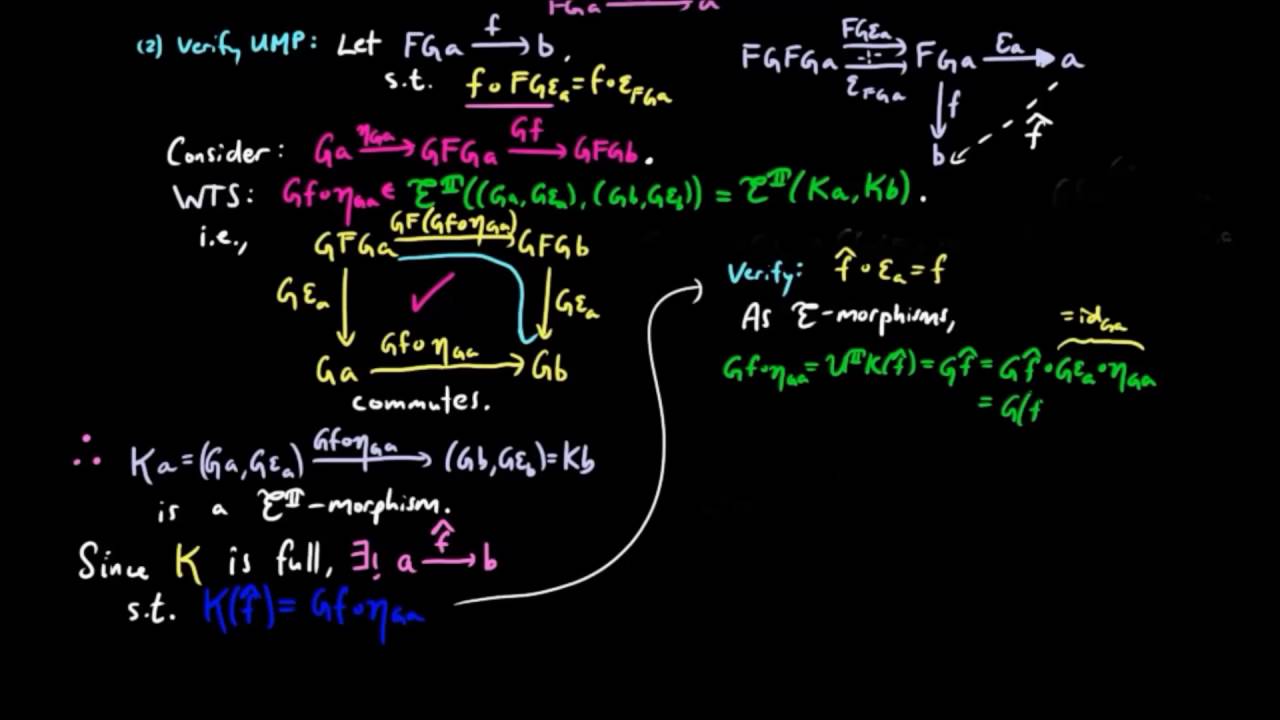 FGa → a
(2) Verify UMP: Let FGa —f→ b,
s.t. f∘FGε_a = f∘ε_{FGa}
FGFGa ⇉ FGa —ε_a→ a
FGε_a
ε_{FGa}
f
f̂
b
Consider: Ga —η_{Ga}→ GFGa —Gf→ GFGb.
WTS: Gf∘η_{Ga} ∈ ℰ^𝕋((Ga,Gε_a),(Gb,Gε_b)) = ℰ^𝕋(Ka,Kb).
i.e.,
GFGa —GF(Gf∘η_{Ga})→ GFGb
Gε_a ↓ ✓ ↓ Gε_a
Ga —Gf∘η_{Ga}→ Gb
commutes.
∴ Ka=(Ga,Gε_a) —Gf∘η_{Ga}→ (Gb,Gε_b)=Kb
is a ℰ^𝕋-morphism.
Since K is full, ∃! a —f̂→ b
s.t. K(f̂)= Gf∘η_{Ga}
Verify: f̂∘ε_a = f
As ℰ-morphisms,
=id_{Ga}
Gf∘η_{Ga} = U^𝕋K(f̂) = Gf̂ = Gf̂∘Gε_a∘η_{Ga}
= G(f